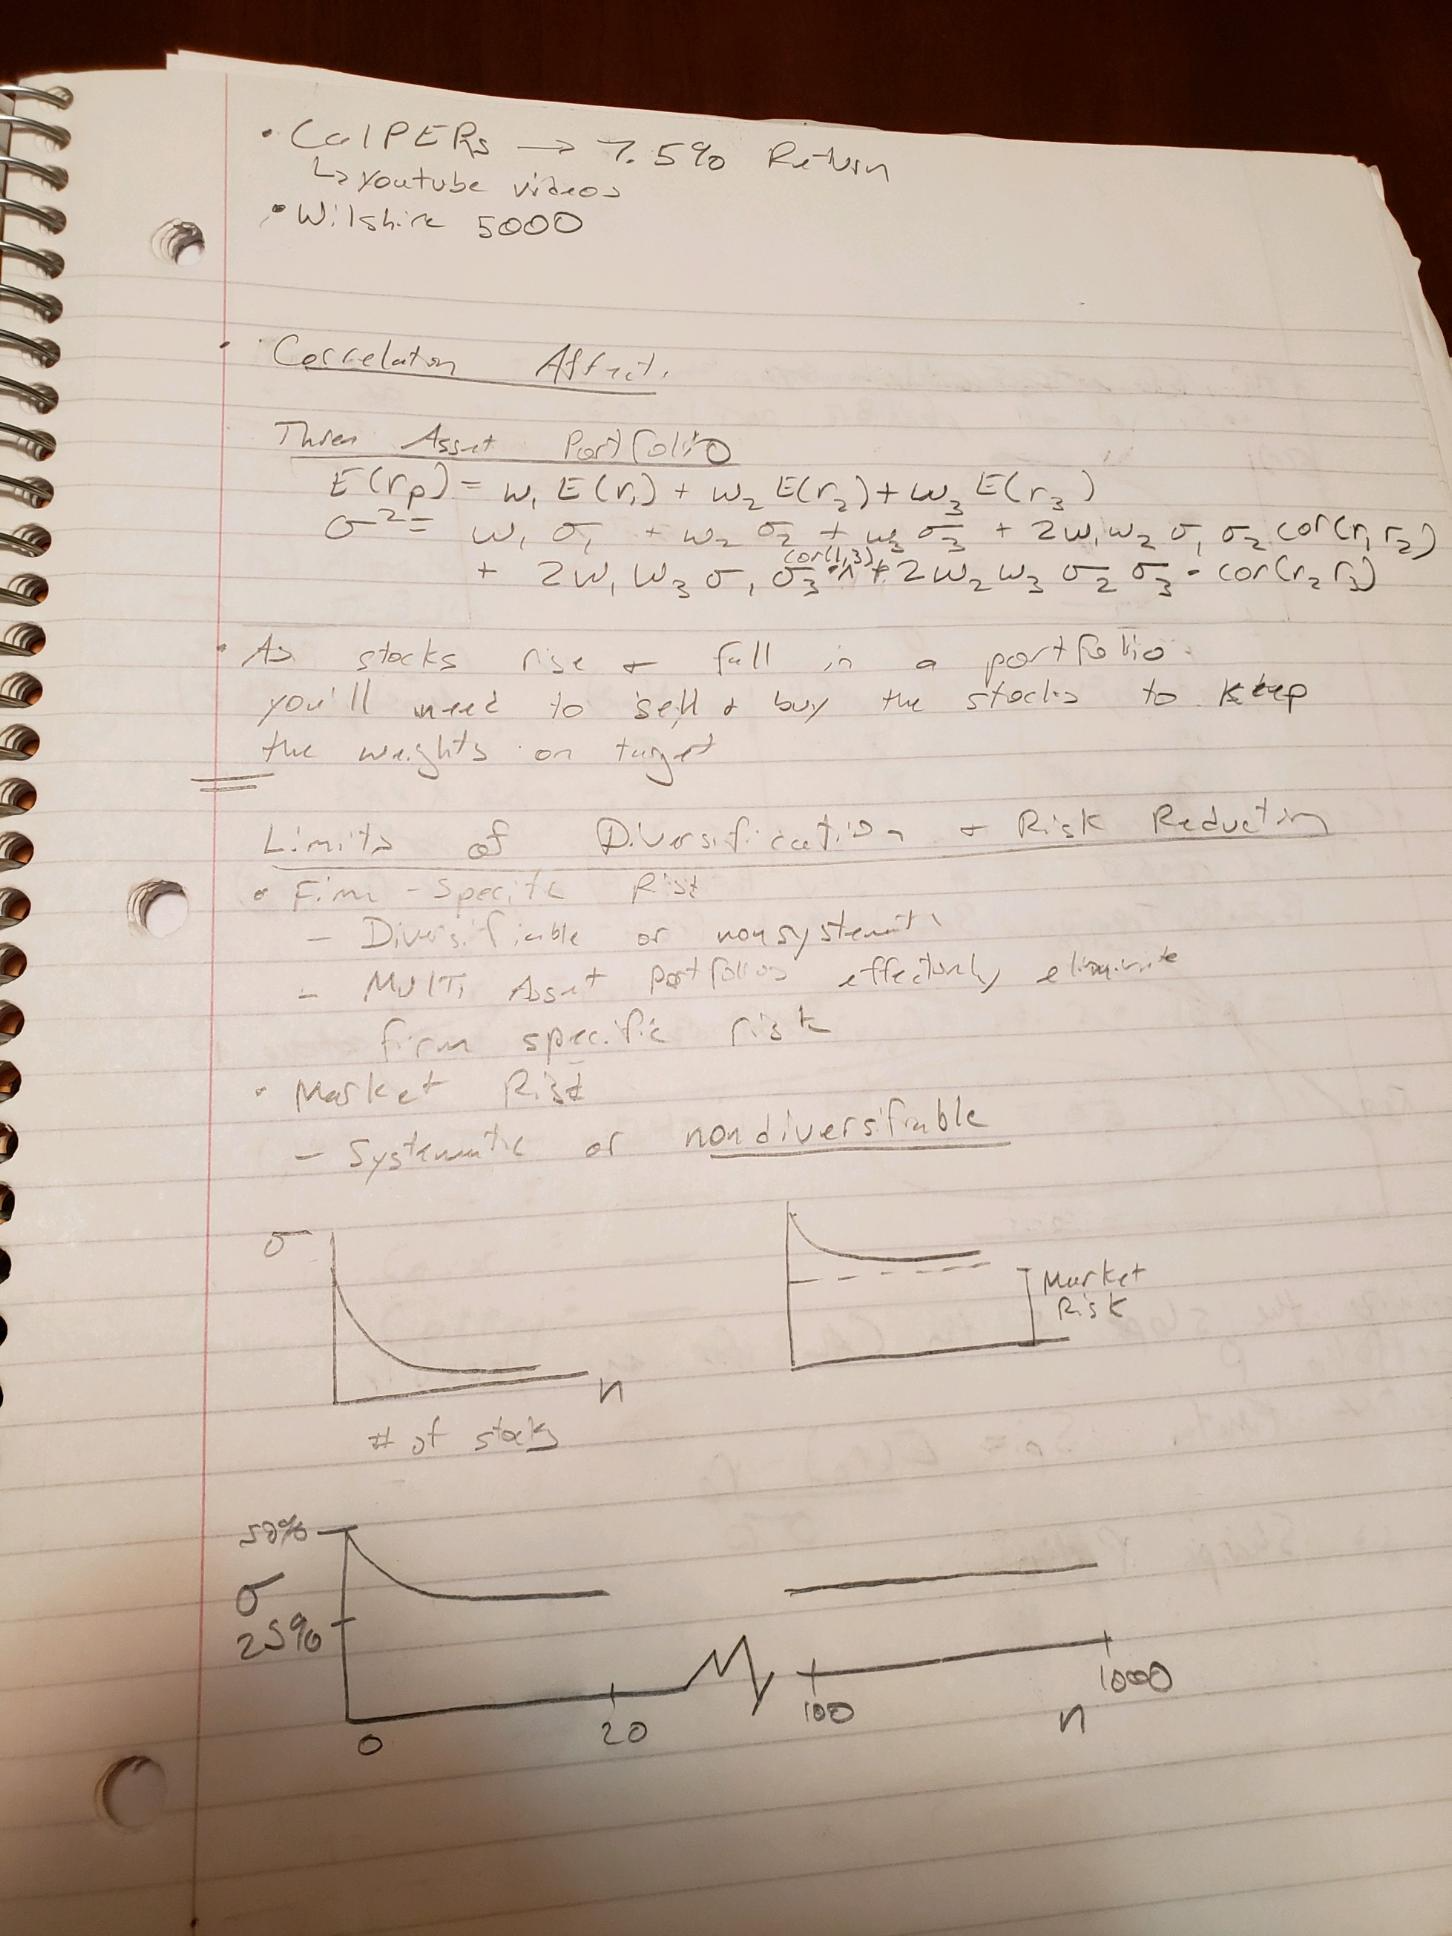 • CalPERs → 7.5% Return
↳ youtube videos
• Wilshire 5000
• Correlation Affect.
Three Asset Portfolio
E(rp) = w₁ E(r₁) + w₂ E(r₂) + w₃ E(r₃)
σ² = w₁ σ₁ + w₂ σ₂ + w₃ σ₃ + 2w₁w₂ σ₁ σ₂ cor(r₁ r₂)
+ 2w₁ w₃ σ₁ σ₃ · cor(1,3) + 2w₂ w₃ σ₂ σ₃ · cor(r₂ r₃)
• As stocks rise & fall in a portfolio
you'll need to sell & buy the stocks to keep
the weights on target
Limits of Diversification & Risk Reduction
• Firm-Specific Risk
- Diversifiable or nonsystematic
- Multi Asset portfolios effectively eliminate
firm specific risk
• Market Risk
- Systematic or nondiversifiable
σ
n
# of stocks
Market
Risk
50%
σ
25%
0
20
100
1000
n